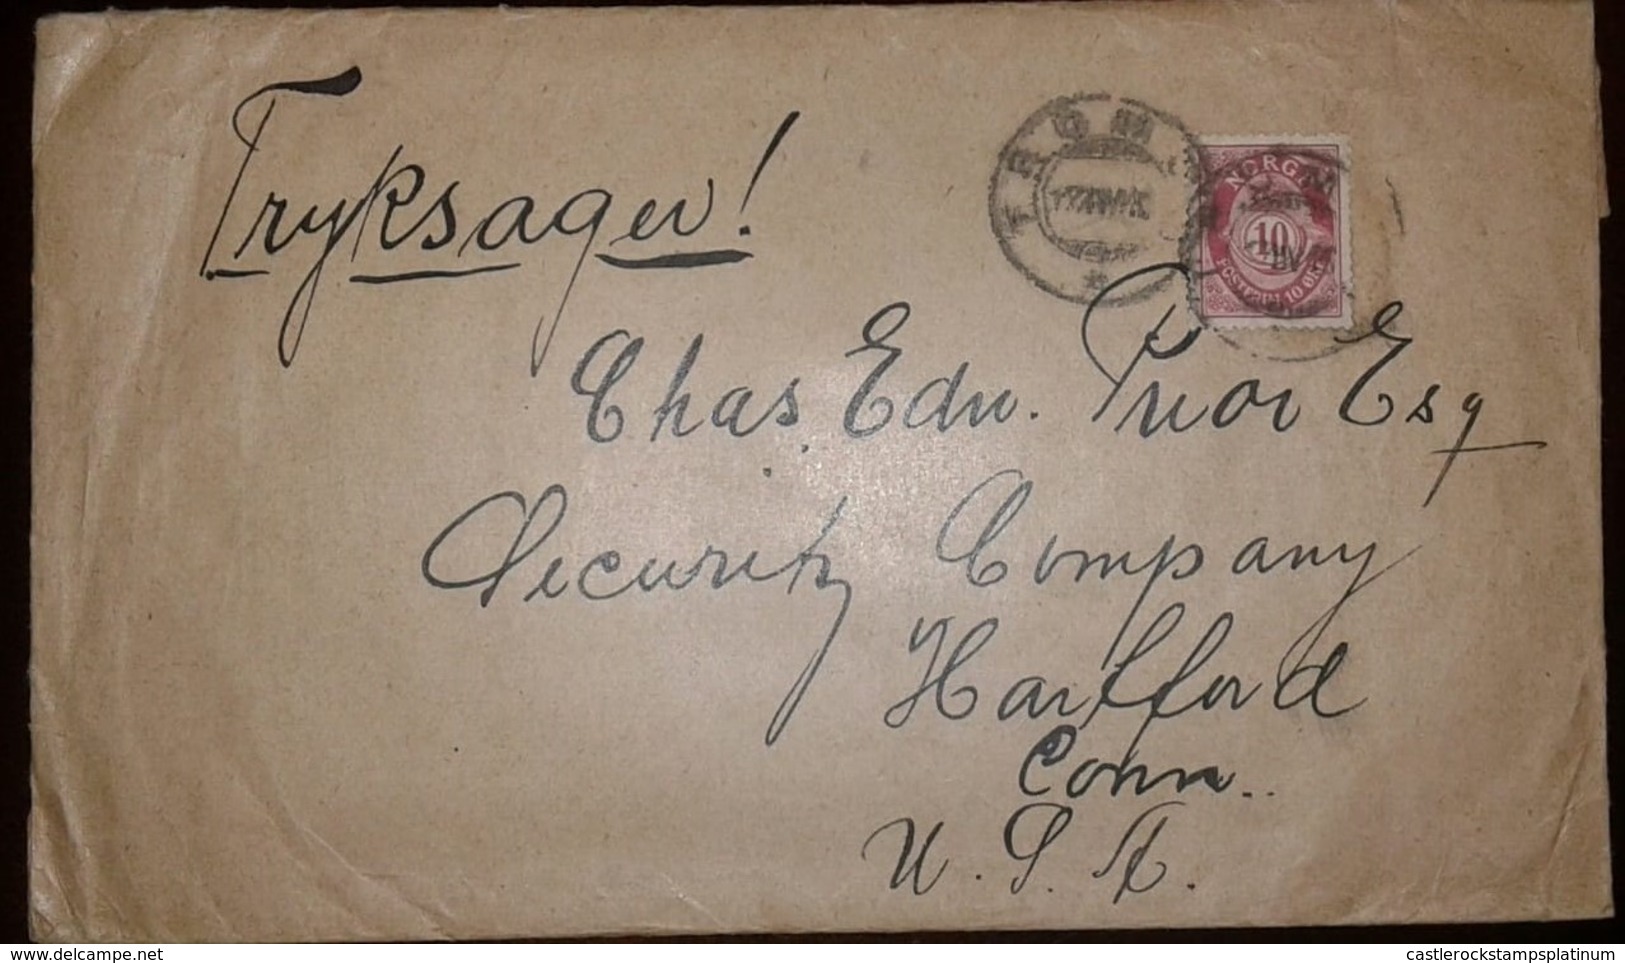 Tryksager!
TROMSØ
NORGE
10
POSTFRIM 10 ØRE
Chas. Edw. Prior Esq
Security Company
Hartford
Conn.
U. S. A.
delcampe.net
castlerockstampsplatinum